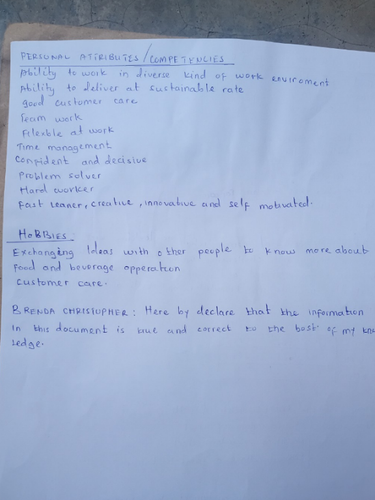 PERSONAL ATTRIBUTES/COMPETENCIES
Ability to work in diverse kind of work enviroment
Ability to deliver at sustainable rate
good customer care
Team work
Flexible at work
Time management
Confident and decisive
Problem solver
Hard worker
Fast leaner, creative, innovative and self motivated.
HOBBIES:
Exchanging Ideas with other people to know more about
Food and beverage opperation
customer care.
BRENDA CHRISTOPHER: Here by declare that the information
In this document is true and correct to the best of my
ledge.